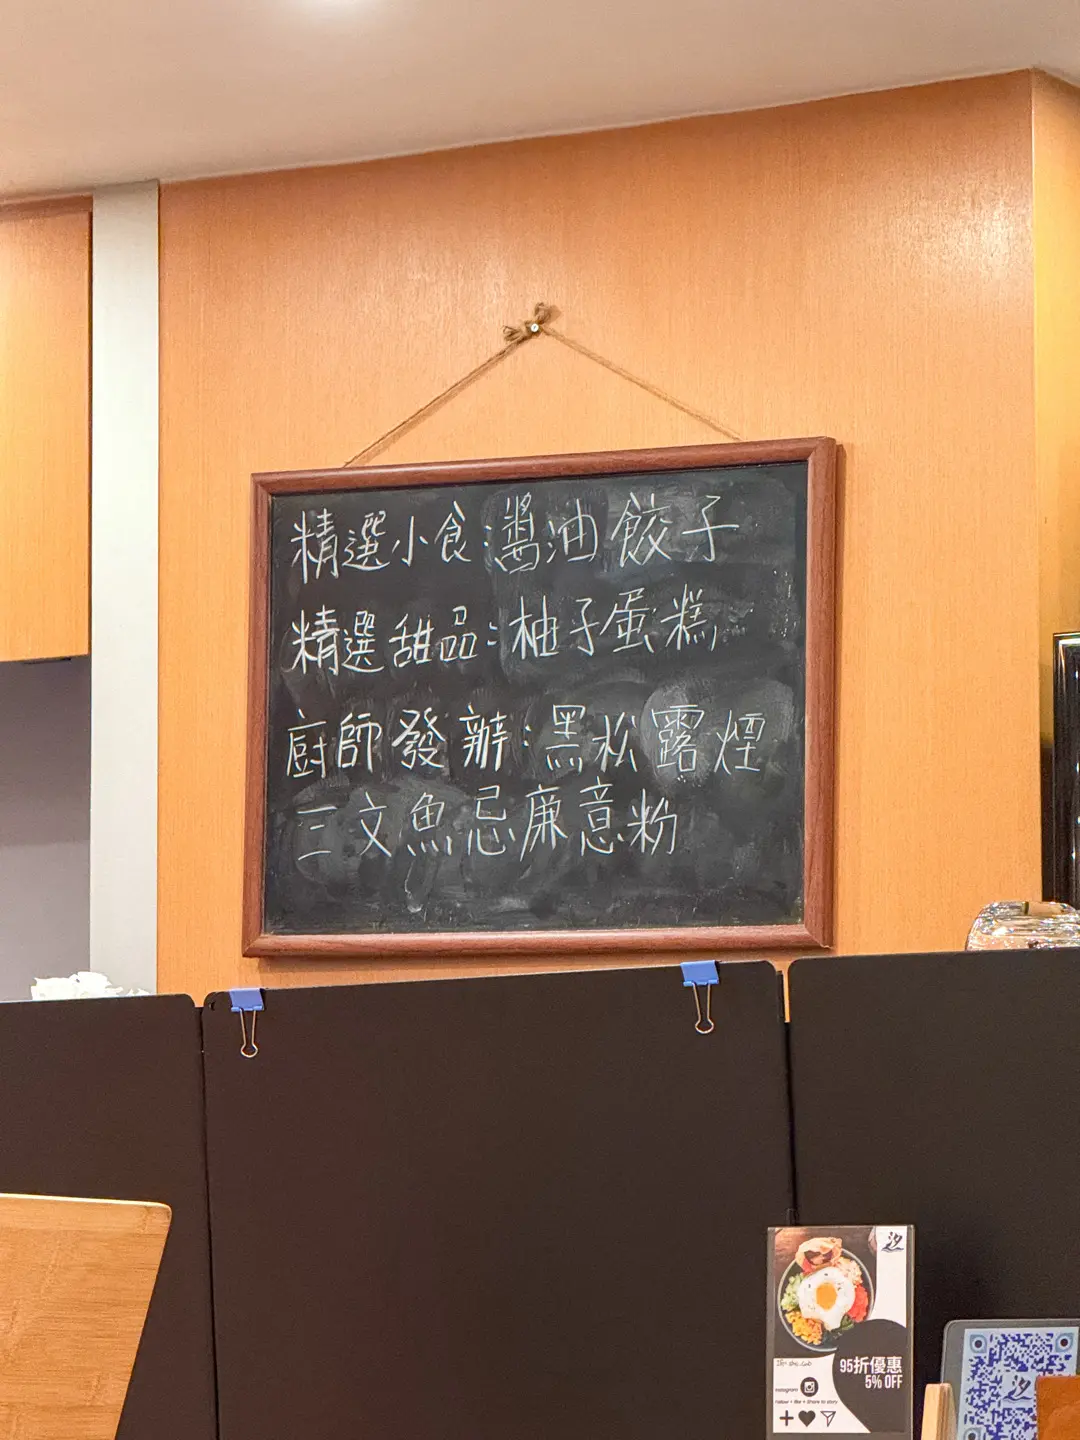 精選小食:醬油餃子
精選甜品:柚子蛋糕
廚師發辦:黑松露煙
三文魚忌廉意粉
汐
95折優惠
5% OFF
Instagram
Follow + like + Share to story
汐